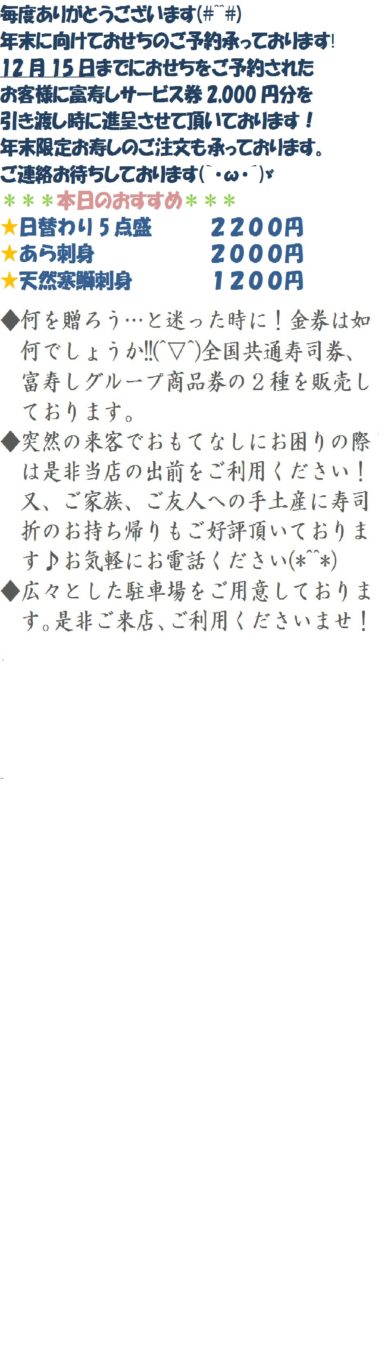 毎度ありがとうございます(#^^#)
年末に向けておせちのご予約承っております!
12月15日までにおせちをご予約された
お客様に富寿しサービス券2.000円分を
引き渡し時に進呈させて頂いております！
年末限定お寿しのご注文も承っております。
ご連絡お待ちしております(`・ω・´)ゞ
＊＊＊本日のおすすめ＊＊＊
★日替わり５点盛　　　２２００円
★あら刺身　　　　　　２０００円
★天然寒鰤刺身　　　　１２００円
◆何を贈ろう…と迷った時に！金券は如
何でしょうか!!(^▽^)全国共通寿司券、
富寿しグループ商品券の２種を販売し
ております。
◆突然の来客でおもてなしにお困りの際
は是非当店の出前をご利用ください！
又、ご家族、ご友人への手土産に寿司
折のお持ち帰りもご好評頂いておりま
す♪お気軽にお電話ください(*^^*)
◆広々とした駐車場をご用意しておりま
す。是非ご来店、ご利用くださいませ！